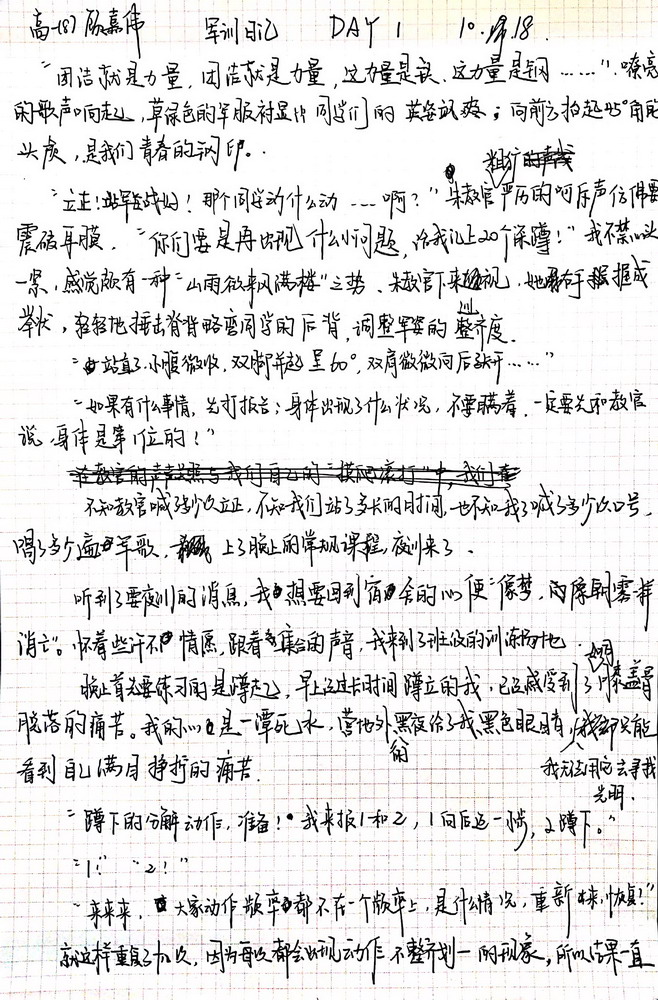 高一(8) 顾嘉伟 军训日记 DAY 1 10.18.
"团洁就是力量，团洁就是力量，这力量是铁，这力量是钢……"。嘹亮
的歌声响起，草绿色的军服衬显出同学们的英姿飒爽；向前方抬起45°角的
头颅，是我们青春的钢印。
粗犷
"立正！站军姿战好！那个同学为什么动……啊？"朱教官严厉的呵斥声仿佛要
震破耳膜，"你们要是再出现什么小问题，给我记上20个深蹲！"我不禁心头
一紧，感觉颇有一种"山雨欲来风满楼"之势。朱教官下来巡视，她右手握成
拳状，轻轻地捶击背脊略弯同学的后背，调整军姿的整齐度。
"站直了，小腹微收，双脚并起呈60°，双肩微微向后张开……"
"如果有什么事情，先打报告；身体出现了什么状况，不要瞒着，一定要先和教官
说，身体是第1位的！"
不知教官喊了多少次立正，不知我们站了多长的时间，也不知我们喊了多少次口号，
唱了多少遍军歌，上了晚上的常规课程，夜训来了。
听到了要夜训的消息，我想要回到宿舍的心便"像梦，像朝雾一样
消亡"。怀着些许不情愿，跟着集合的声音，我来到了班级的训练场地。
晚上首先要练习的是蹲起，早上经过长时间蹲立的我，已经感受到了膝盖骨
脱落的痛苦。我的心是一潭死水，营地外的黑夜给了我黑色眼睛，我却只能
看到自己满目狰狞的痛苦。
我无法用它去寻找
光明。
"蹲下的分解动作，准备！我来报1和2，1向后退一步，2蹲下。"
"1！" "2！"
"来来来，大家动作频率都不在一个频率上，是什么情况，重新来，恢复！"
就这样重复了几次，因为每次都会出现动作不整齐划一的现象，所以结果一直